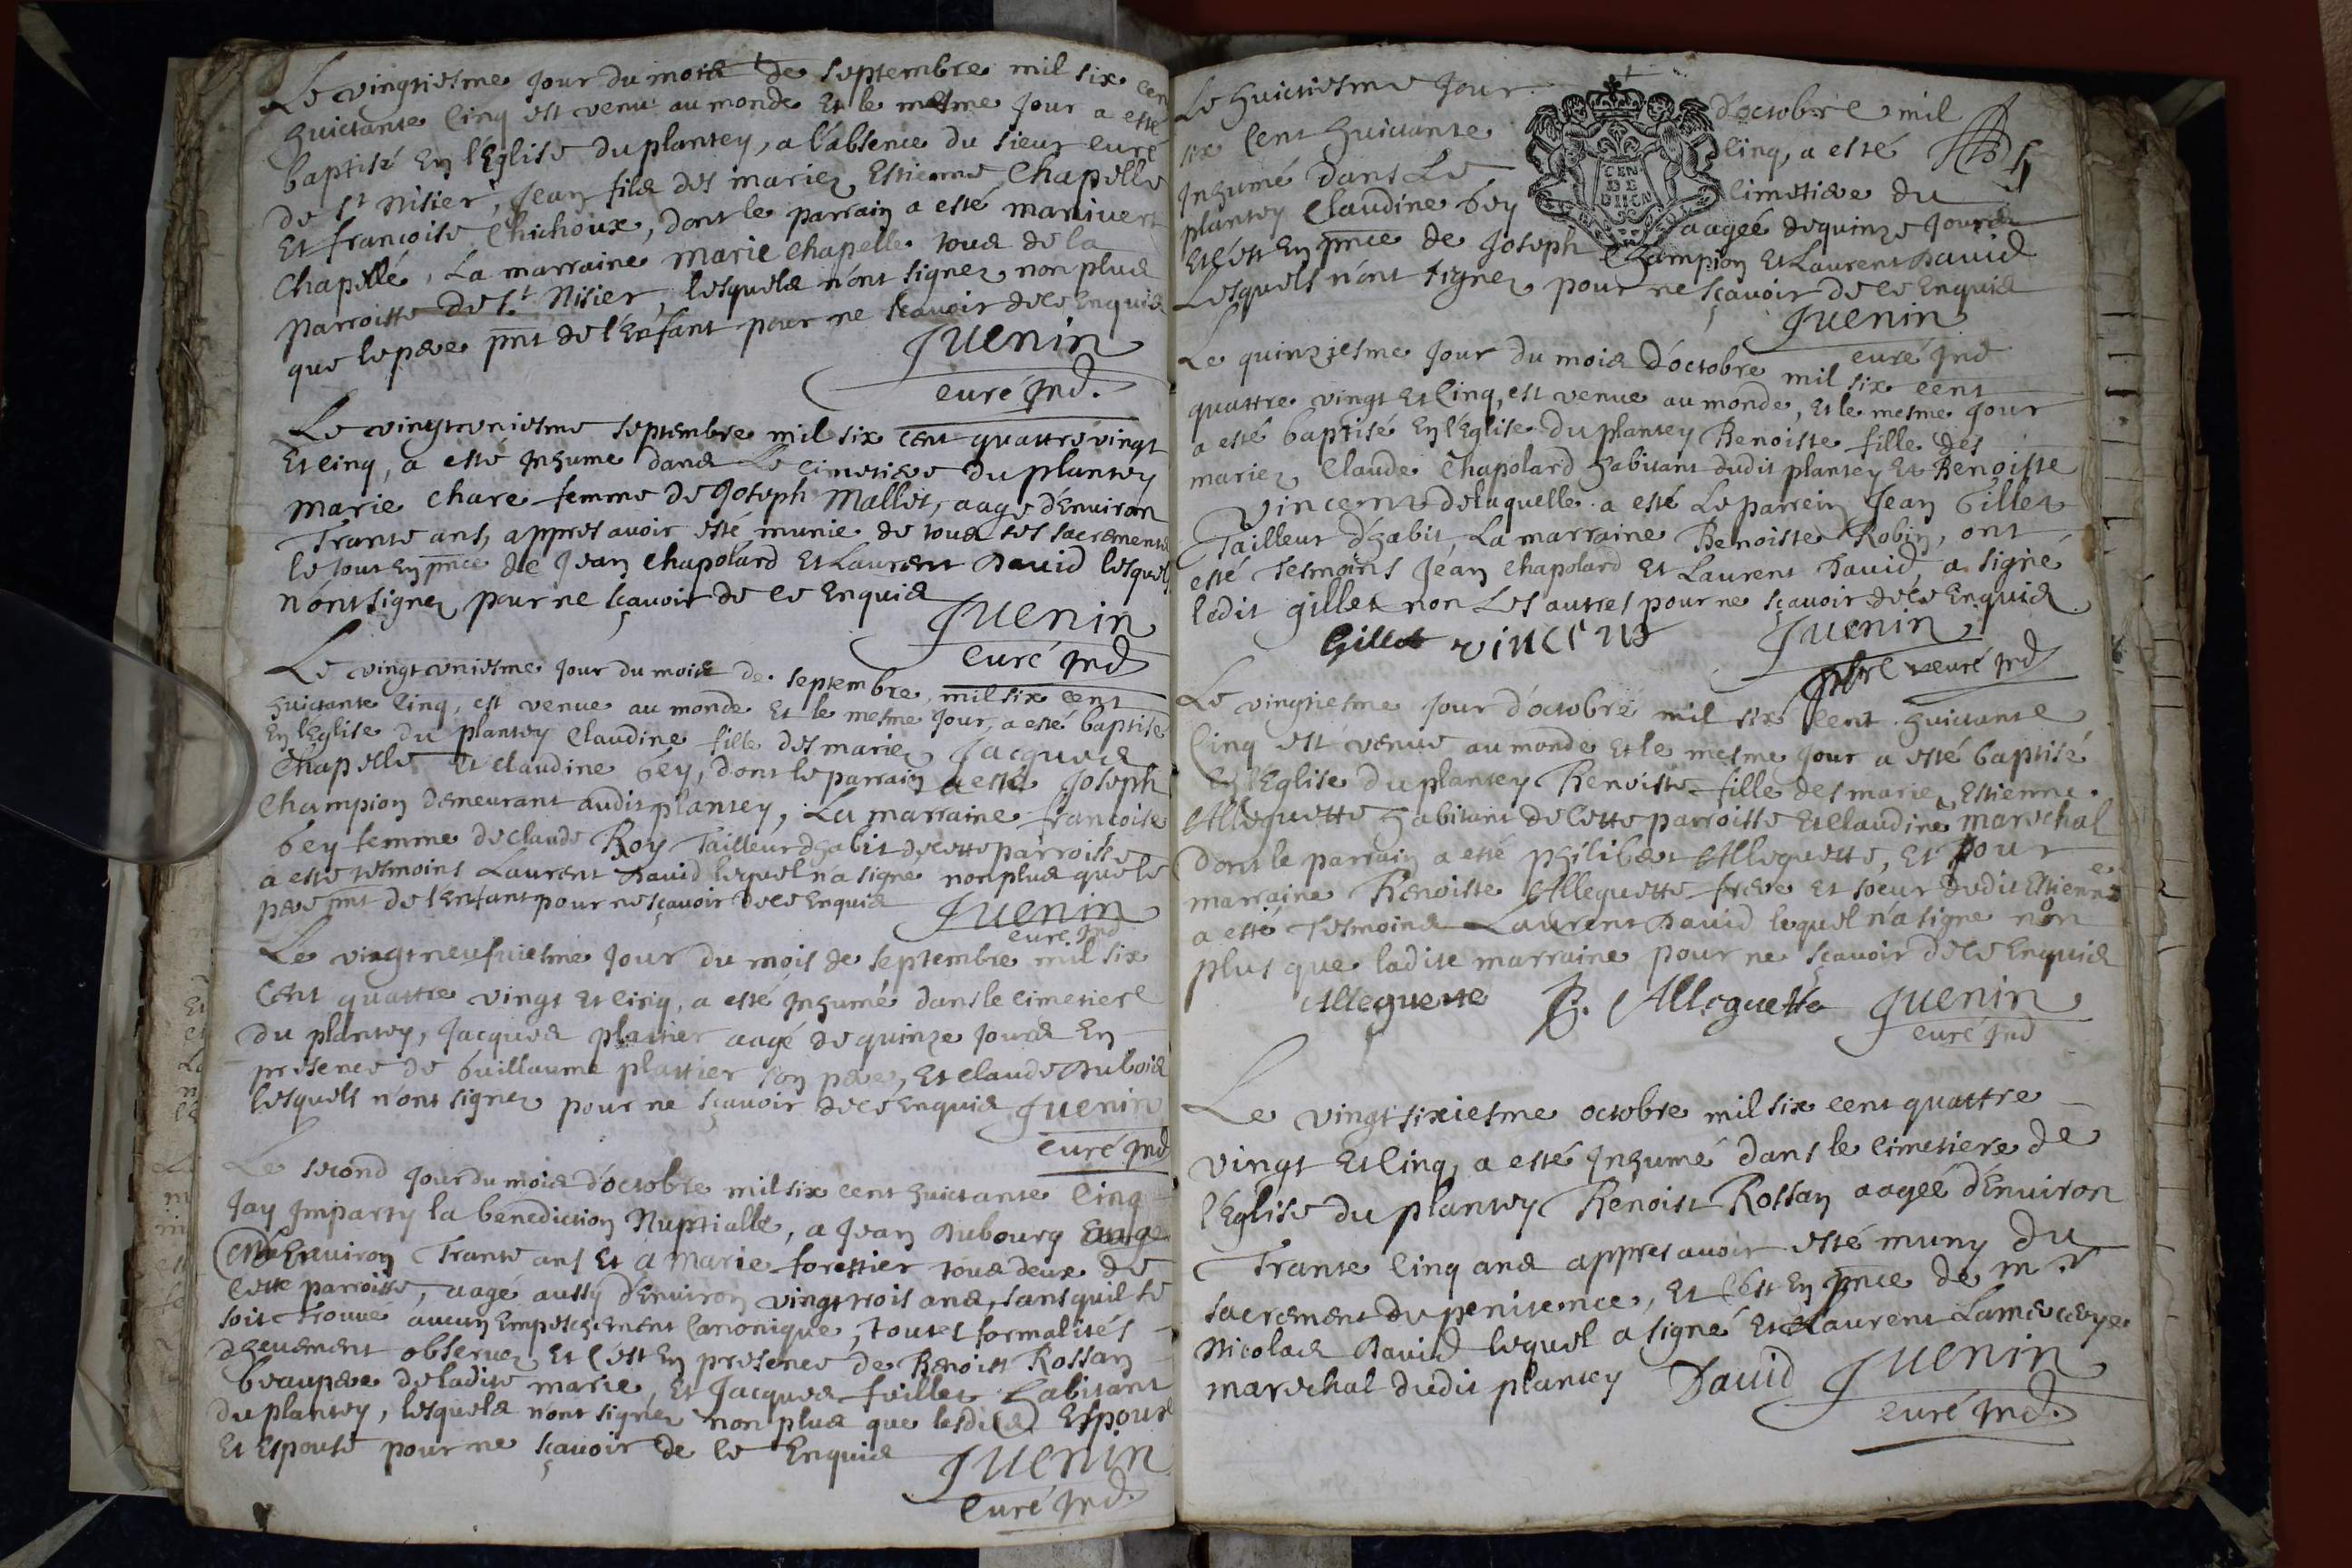 Le vingtiesme jour du mois de septembre mil six cen
huictante cinq est venu au monde et le mesme jour a esté
baptisé en l'Eglise du plantey, a l'absence du sieur curé
de St Nisier, Jean fils des mariez Estienne Chapelle
Et françoise Chichoux, dont le parrain a esté
Chapelle, La marraine marie Chapelle tous de la
parroisse de St Nisier, lesquels n'ont signez non plus
que le pere pnt de l'Enfant pour ne scavoir de ce Enquis
Juenin
curé Ind.
Le vingt uniesme septembre mil six cent quattre vingt
Et cinq, a esté Inhume dans Le cimetiere du plantey
Marie Chare femme de Joseph Mallet, aage d'Environ
Trante ans, appres avoir esté munie de tous ses sacrements
le tout en pnce de Jean Chapolard Et Laurent David lesquels
n'ont signez pour ne sçavoir de ce Enquis
Juenin
Curé Ind
Le vingt uniesme jour du mois de septembre mil six cent
huictante cinq, est venue au monde Et le mesme jour, a esté baptisé
En l'Eglise du plantey Claudine fille des mariez Jacques
Chapelle Et Claudine bey, dont le parrain a esté Joseph
Champion demeurant audit plantey, La marraine francoise
bey femme de claude Roy Tailleur d'habit de cette parroisse
a esté tesmoins Laurent David lequel n'a signe non plus que le
pere pnt de l'Enfant pour ne sçavoir de ce Enquis
Juenin
curé Ind
Le vingt neufuiesme jour du mois de septembre mil six
Cent quattre vingt et cinq, a esté Inhumé dans le cimetiere
du plantey, Jacques plattier aagé de quinze jours En
presence de Guillaume plattier son pere, Et claude Dubois
lesquels n'ont signez pour ne sçavoir de ce Enquis Juenin
Curé Ind
Le second jour du mois d'octobre mil six cent huictante Cinq
Jay Imparty la benediction Nuptialle, a Jean Dubourg aage
d'Environ Trante ans Et a Marie forestier tous deux de
Cette parroisse, aagé aussy d'Environ vingt trois ans, sans quil se
soit trouvé aucun Empeschement Canonique, toutes formalités
dheuement observez Et c'est En presence de Benoist Rossan
beaupere de ladite marie, Et Jacques fuillet habitant
du plantey, lesquels n'ont signez non plus que lesdits Espoux
Et Espouse pour ne sçavoir de ce Enquis
Juenin
Curé Ind.
Le huictiesme jour d'octobre mil
six Cent huictante Cinq, a esté
Inhumé dans Le Cimetiere du
plantey Claudine bey aagée de quinze jours
Et c'est En pnce de Joseph Champion Et Laurent David
Lesquels n'ont signez pour ne sçavoir de ce Enquis
Juenin
curé Ind
CEN
DE
DIION
Le quinziesme jour du mois d'octobre mil six cent
quattre vingt Et cinq, est venue au monde, Et le mesme jour
a esté baptisé En l'Eglise du plantey Benoiste fille des
mariez Claude Chapolard habitant dudit plantey Et Benoiste
vincent de laquelle a esté Le parrein Jean Gillet
Tailleur d'habit, La marraine Benoiste Robin, ont
esté Tesmoins Jean Chapolard Et Laurent David, a signé
ledit gillet non Les autres pour ne sçavoir de ce Enquis
Gillet vincent Juenin
pbre curé Ind
Le vingtiesme jour d'octobre mil six Cent huictante
Cinq est venue au monde Et le mesme jour a esté baptisé
En l'Eglise du plantey Benoiste fille des mariez Estienne
Alleguette habitant de cette parroisse Et Claudine Marechal
Dont le parrain a esté philibert Alleguette, Et pour
marraine Benoiste Alleguette frere Et soeur dudit Estienne
a esté Tesmoins Laurent David lequel n'a signe non
plus que ladite marraine pour ne sçavoir de ce Enquis
Alleguette P. Alleguette Juenin
curé Ind
Le vingt sixiesme octobre mil six cent quattre
vingt Et Cinq, a esté Inhumé dans le Cimetiere de
l'Eglise du plantey Benoist Rossan aagée d'Environ
Trante Cinq ans appres avoir esté muny du
sacrement du penitence, Et C'est En pnce de mr
Nicolas David lequel a signé Et Laurent
mareschal dudit plantey David Juenin
curé Ind.